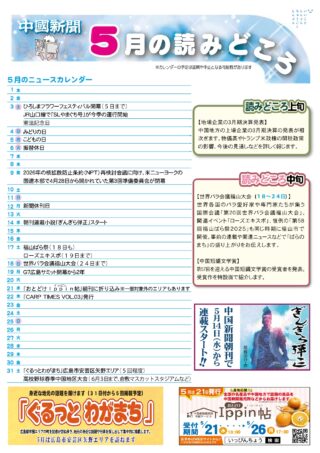 中國新聞
5月の読みどころ
※カレンダーの予定は延期や中止となる可能性があります
5月のニュースカレンダー
1 木
2 金
3 土 ひろしまフラワーフェスティバル開幕(5日まで)
JR山口線で「SLやまぐち号」が今季の運行開始
憲法記念日
4 日 みどりの日
5 月 こどもの日
6 火 振替休日
7 水
8 木
9 金 2026年の核拡散防止条約(NPT)再検討会議に向け、米ニューヨークの
国連本部で4月28日から開かれていた第3回準備委員会が閉幕
10 土
11 日
12 月 新聞休刊日
13 火
14 水 朝刊連載小説「ぎんぎら弾正」スタート
15 木
16 金
17 土 福山ばら祭(18日も)
ローズエキスポ(19日まで)
18 日 世界バラ会議福山大会(24日まで)
19 月 G7広島サミット開幕から2年
20 火
21 水 「おとどけIppin帖」朝刊に折り込み※一部対象外のエリアもあります
22 木 「CARP TIMES VOL.03」発行
23 金
24 土
25 日
26 月
27 火
28 水
29 木
30 金
31 土 「ぐるっとわがまち」広島市安芸区矢野エリア(5回程度)
高校野球春季中国地区大会(6月3日まで、倉敷マスカットスタジアムなど)
読みどころ上旬
【地場企業の3月期決算発表】
中国地方の上場企業の3月期決算の発表が相
次ぎます。物価高やトランプ米政権の関税政策
の影響、今後の見通しなどを詳しく報じます。
読みどころ中旬
【世界バラ会議福山大会(18~24日)】
世界各国のバラ愛好家や専門家たちが集う
国際会議「第20回世界バラ会議福山大会」、
関連イベント「ローズエキスポ」、恒例の「第58
回福山ばら祭2025」も同じ時期に福山市で
開催。事前の連載や関連ニュースなどで「ばらの
まち」の盛り上がりをお伝えします。
【中国短編文学賞】
第57回を迎える中国短編文学賞の受賞者を発表。
受賞作を特設面で紹介します。
中国新聞朝刊で
5月14日(水)から
連載スタート!!
ぎんぎら弾正
身近な地元の話題が満載!(31日付から5回掲載予定)
「ぐるっとわがまち」
5月は広島市安芸区矢野エリアを巡ります
5月21日発行
Ippin帖
受付期間
5/21 水
5/26 月
いっぴんちょう